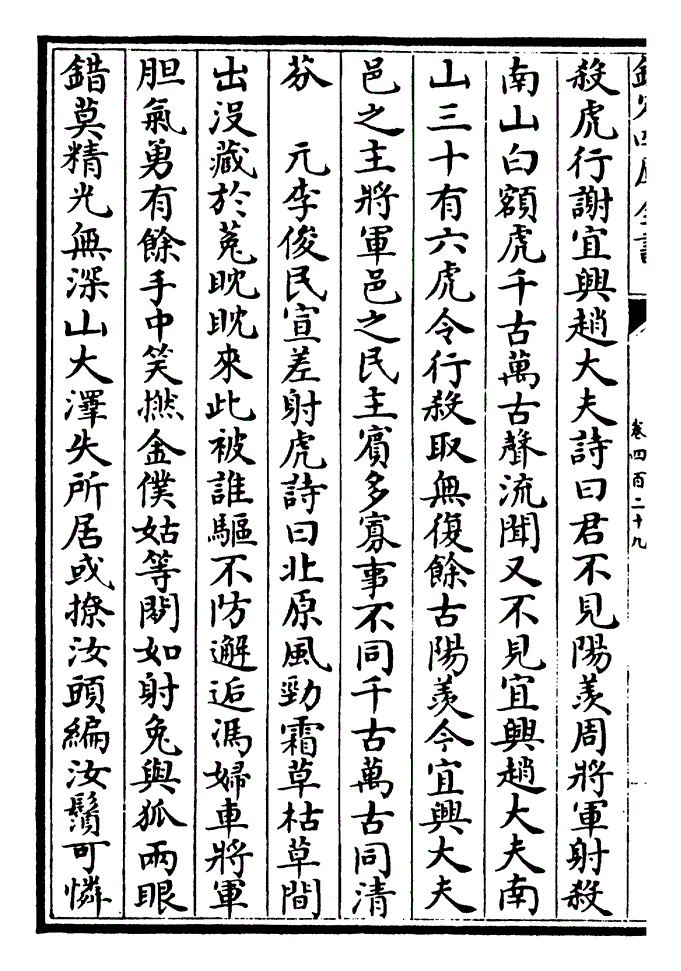 欽定四庫全書
卷四百二十九
殺虎行謝宜興趙大夫詩曰君不見陽羨周將軍射殺
南山白額虎千古萬古聲流聞又不見宜興趙大夫南
山三十有六虎令行殺取無復餘古陽羨今宜興大夫
邑之主將軍邑之民主賓多寡事不同千古萬古同清
芬　元李俊民宣差射虎詩曰北原風勁霜草枯草間
出没藏於菟眈眈來此被誰驅不防邂逅馮婦車將軍
胆氣勇有餘手中笑撚金僕姑等閑如射兔與狐兩眼
錯莫精光無深山大澤失所居或撩汝頭編汝鬚可憐